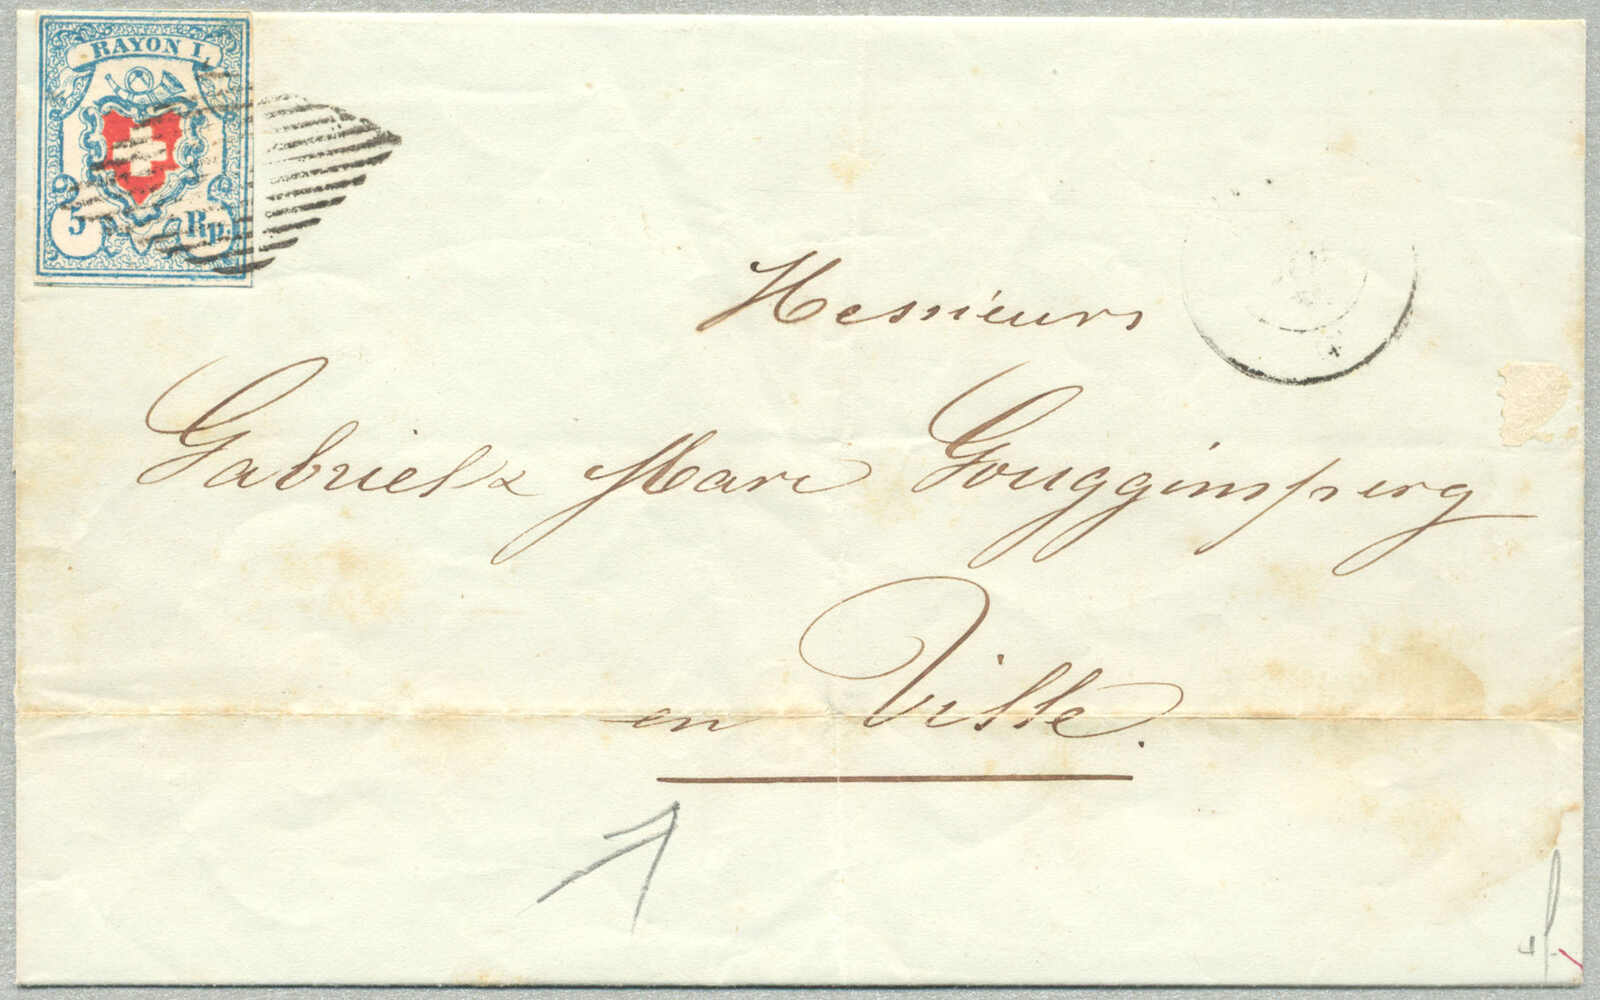 RAYON I.
5 Rp.
Messieurs
Gabriel & Marc Gougginsperg
en Ville.